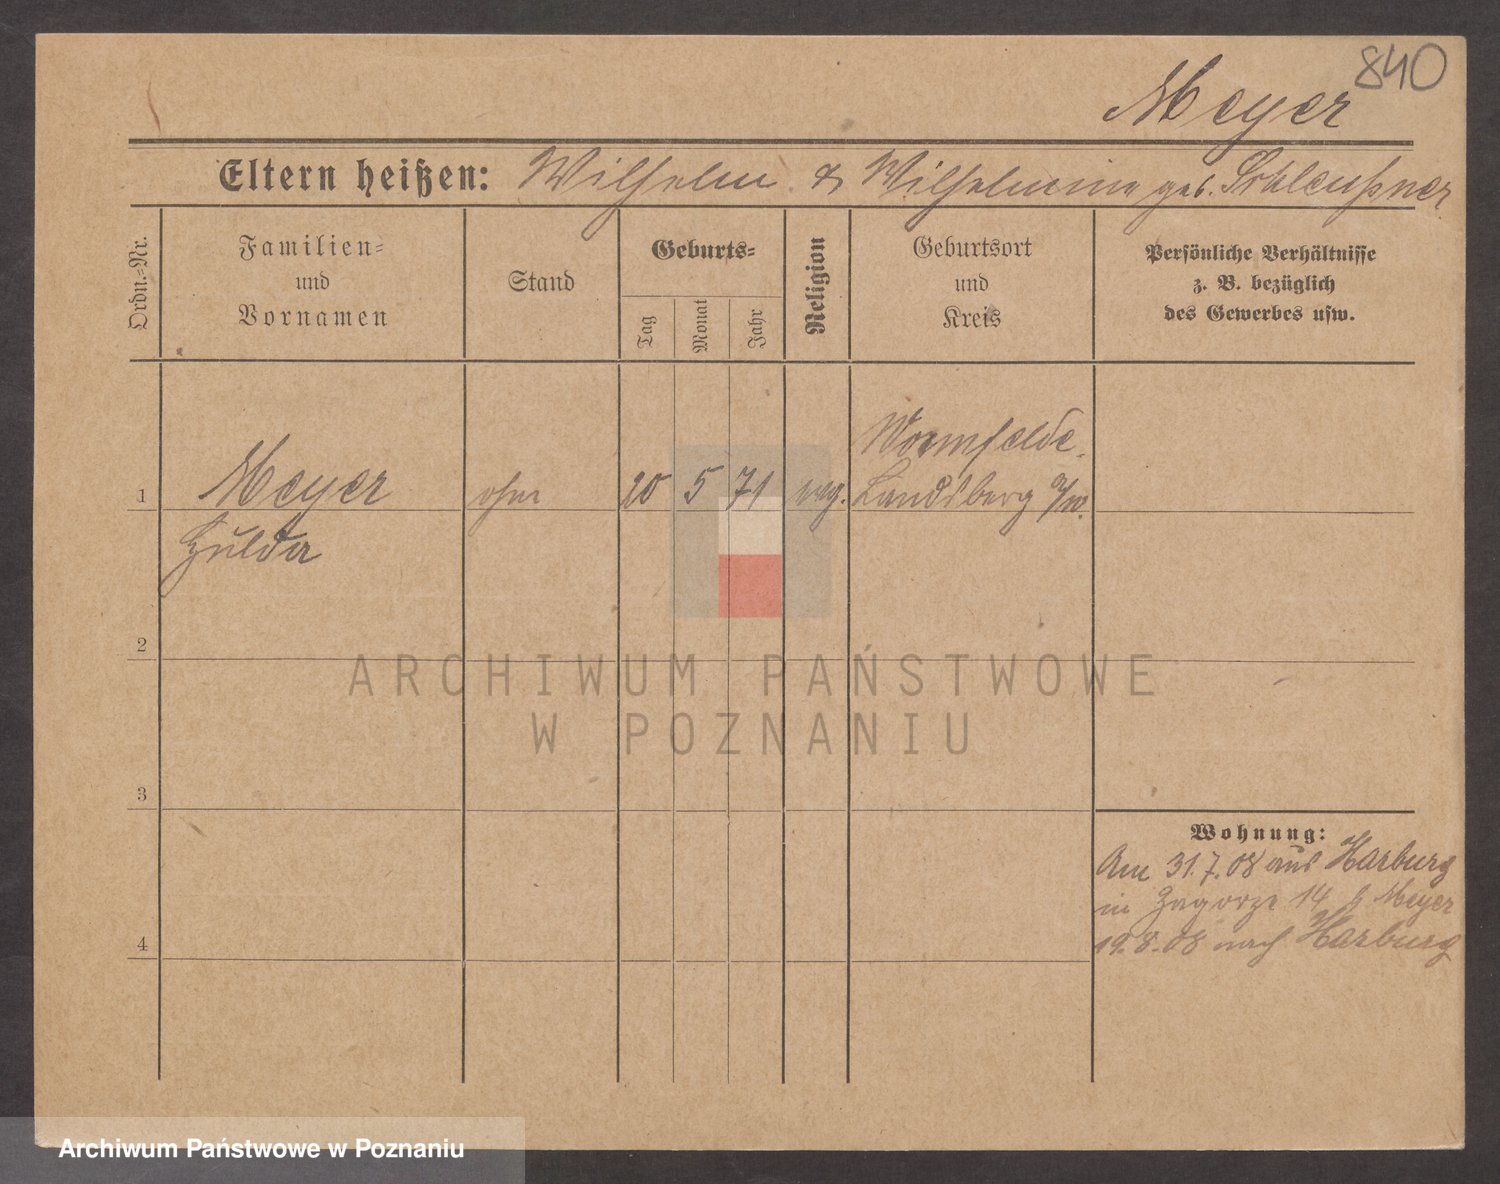 840
Meyer
Eltern heißen: Wilhelm & Wilhelmine geb. Schleußner
Ordn.=Nr.
Familien=
und
Vornamen
Stand
Geburts=
Tag
Monat
Jahr
Religion
Geburtsort
und
Kreis
Persönliche Verhältnisse
z. B. bezüglich
des Gewerbes usw.
1
Meyer
Hulda
ohne
20 5 71
evg.
Wormsfelde
Landsberg a/W.
2
3
4
Wohnung:
Am 31.7.08 aus Harburg
in Zagorze 14 b Meyer
19.8.08 nach Harburg
ARCHIWUM PAŃSTWOWE
W POZNANIU
Archiwum Państwowe w Poznaniu